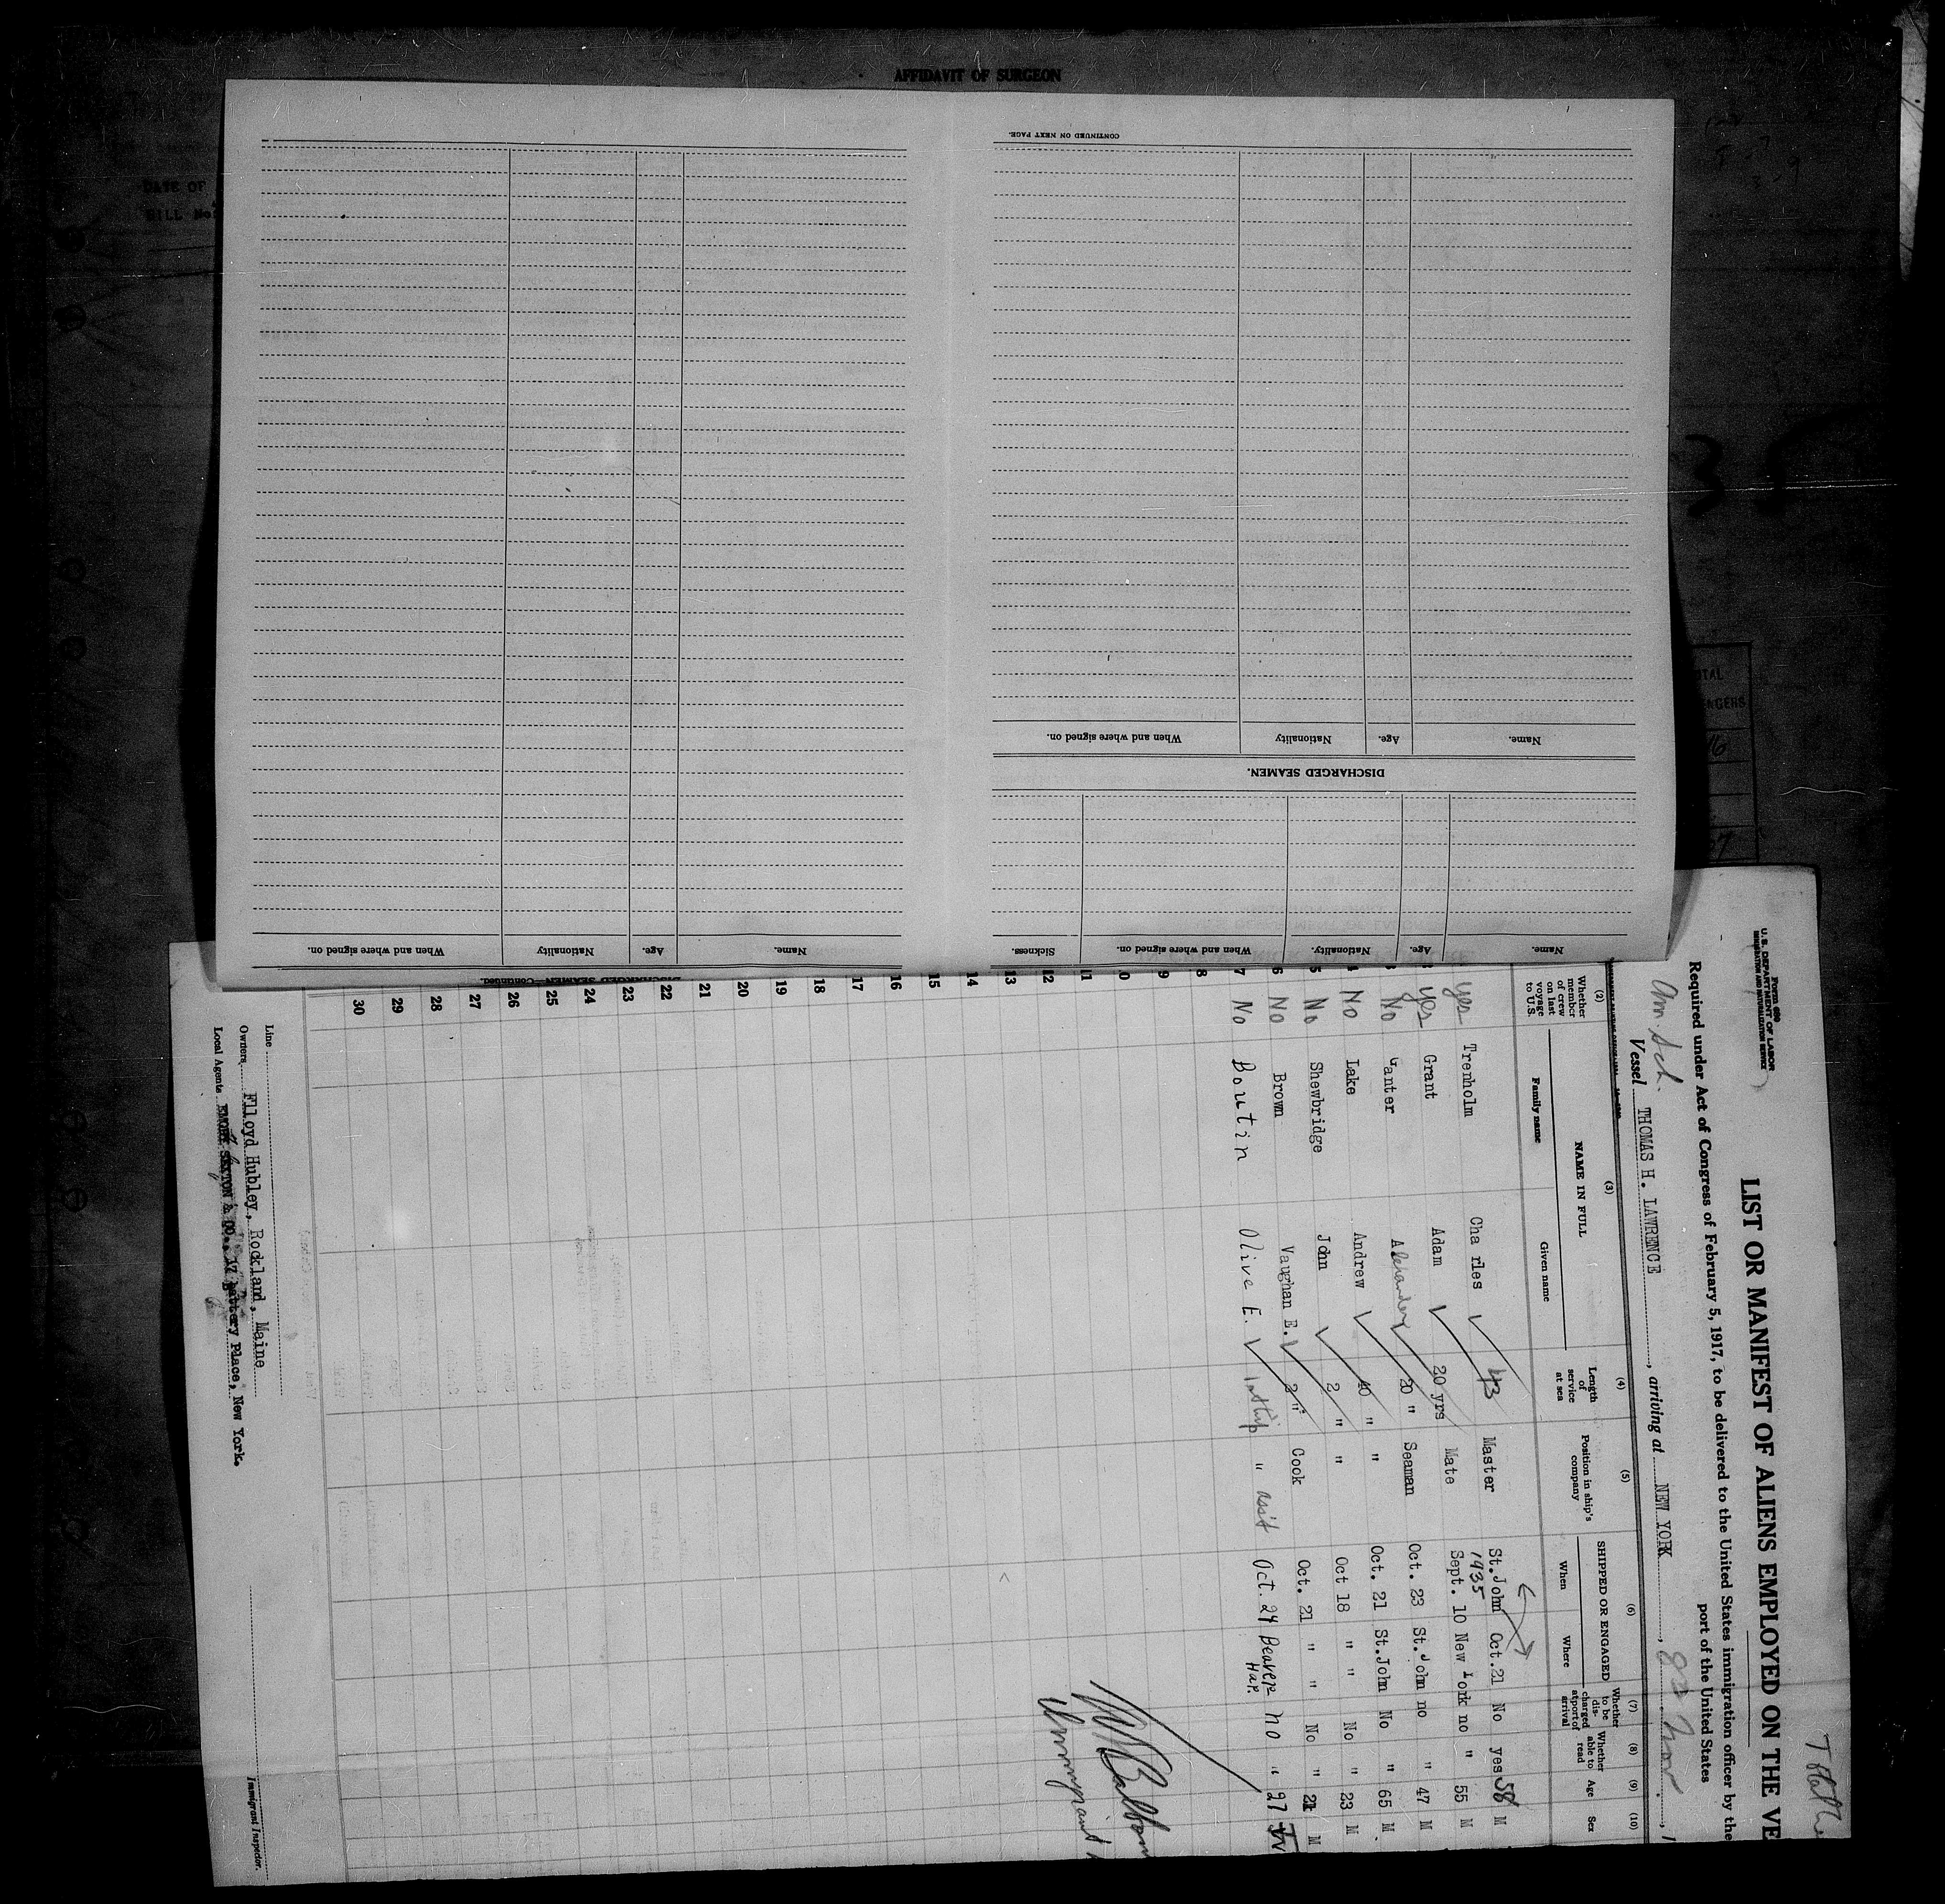 AFFIDAVIT OF SURGEON
DATE OF
CONTINUED ON NEXT PAGE.
Name.
Age.
Nationality
When and where signed on.
DISCHARGED SEAMEN.
Name.
Age.
Nationality.
When and where signed on.
Sickness.
DISCHARGED SEAMEN—Continued.
Name.
Age.
Nationality
When and where signed on.
Form 680
U. S. DEPARTMENT OF LABOR
IMMIGRATION AND NATURALIZATION SERVICE
LIST OR MANIFEST OF ALIENS EMPLOYED ON THE VE
Required under Act of Congress of February 5, 1917, to be delivered to the United States immigration officer by the
port of the United States
Am. Sch.
Vessel THOMAS H. LAWRENCE, arriving at NEW YORK,
(2) (3) (4) (5) (6) (7) (8) (9) (10)
Whether member of crew on last voyage to U.S.
NAME IN FULL
Family name Given name
Length of service at sea
Position in ship's company
SHIPPED OR ENGAGED
When Where
Whether to be discharged at port of arrival
Whether able to read
Age
Sex
yes Trenholm Cha rles 43 Master St. John Oct. 21 No yes 58 M
1935
yes Grant Adam 20 yrs Mate Sept. 10 New York no " 55 M
3 No Ganter Alexander 20 " Seaman Oct. 23 St. John no " 47 M
4 No Lake Andrew 40 " " Oct. 21 St. John No " 65 M
5 No Shewbridge John 2 " " Oct 18 " " No " 23 M
6 No Brown Vaughan E. 2 " Cook Oct. 21 " " No " 21 M
7 No Boutin Olive E. 1st trip " ass't Oct. 24 Beaver Har. no " 27
8
9
10
11
12
13
14
15
16
17
18
19
20
21
22
23
24
25
26
27
28
29
30
Line
Owners Flloyd Hubley, Rockland, Maine
Local Agents 17 Battery Place, New York.
Immigrant Inspector.